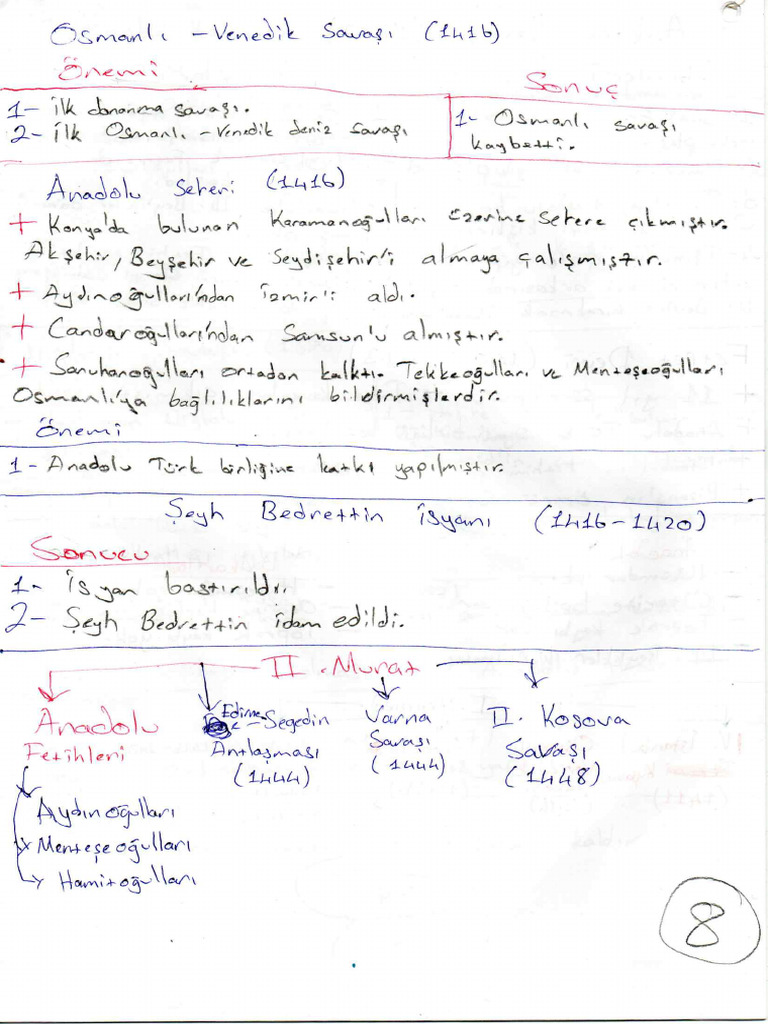 Osmanlı - Venedik Savaşı (1416)
Önemi
Sonuç
1- İlk donanma savaşı.
2- İlk Osmanlı - Venedik deniz savaşı
1- Osmanlı savaşı
kaybetti.
Anadolu Seferi (1416)
+ Konya'da bulunan Karamanoğulları üzerine sefere çıkmıştır.
Akşehir, Beyşehir ve Seydişehir'i almaya çalışmıştır.
+ Aydınoğulları'ndan İzmir'i aldı.
+ Candaroğulları'ndan Samsun'u almıştır.
+ Saruhanoğulları ortadan kalktı. Tekkeoğulları ve Menteşeoğulları
Osmanlı'ya bağlılıklarını bildirmişlerdir.
Önemi
1- Anadolu Türk birliğine katkı yapılmıştır.
Şeyh Bedrettin İsyanı (1416-1420)
Sonucu
1- İsyan bastırıldı.
2- Şeyh Bedrettin idam edildi.
II. Murat
Anadolu
Fetihleri
Edirne - Segedin
Antlaşması
(1444)
Varna
Savaşı
(1444)
II. Kosova
Savaşı
(1448)
Aydınoğulları
Menteşeoğulları
Hamitoğulları
8